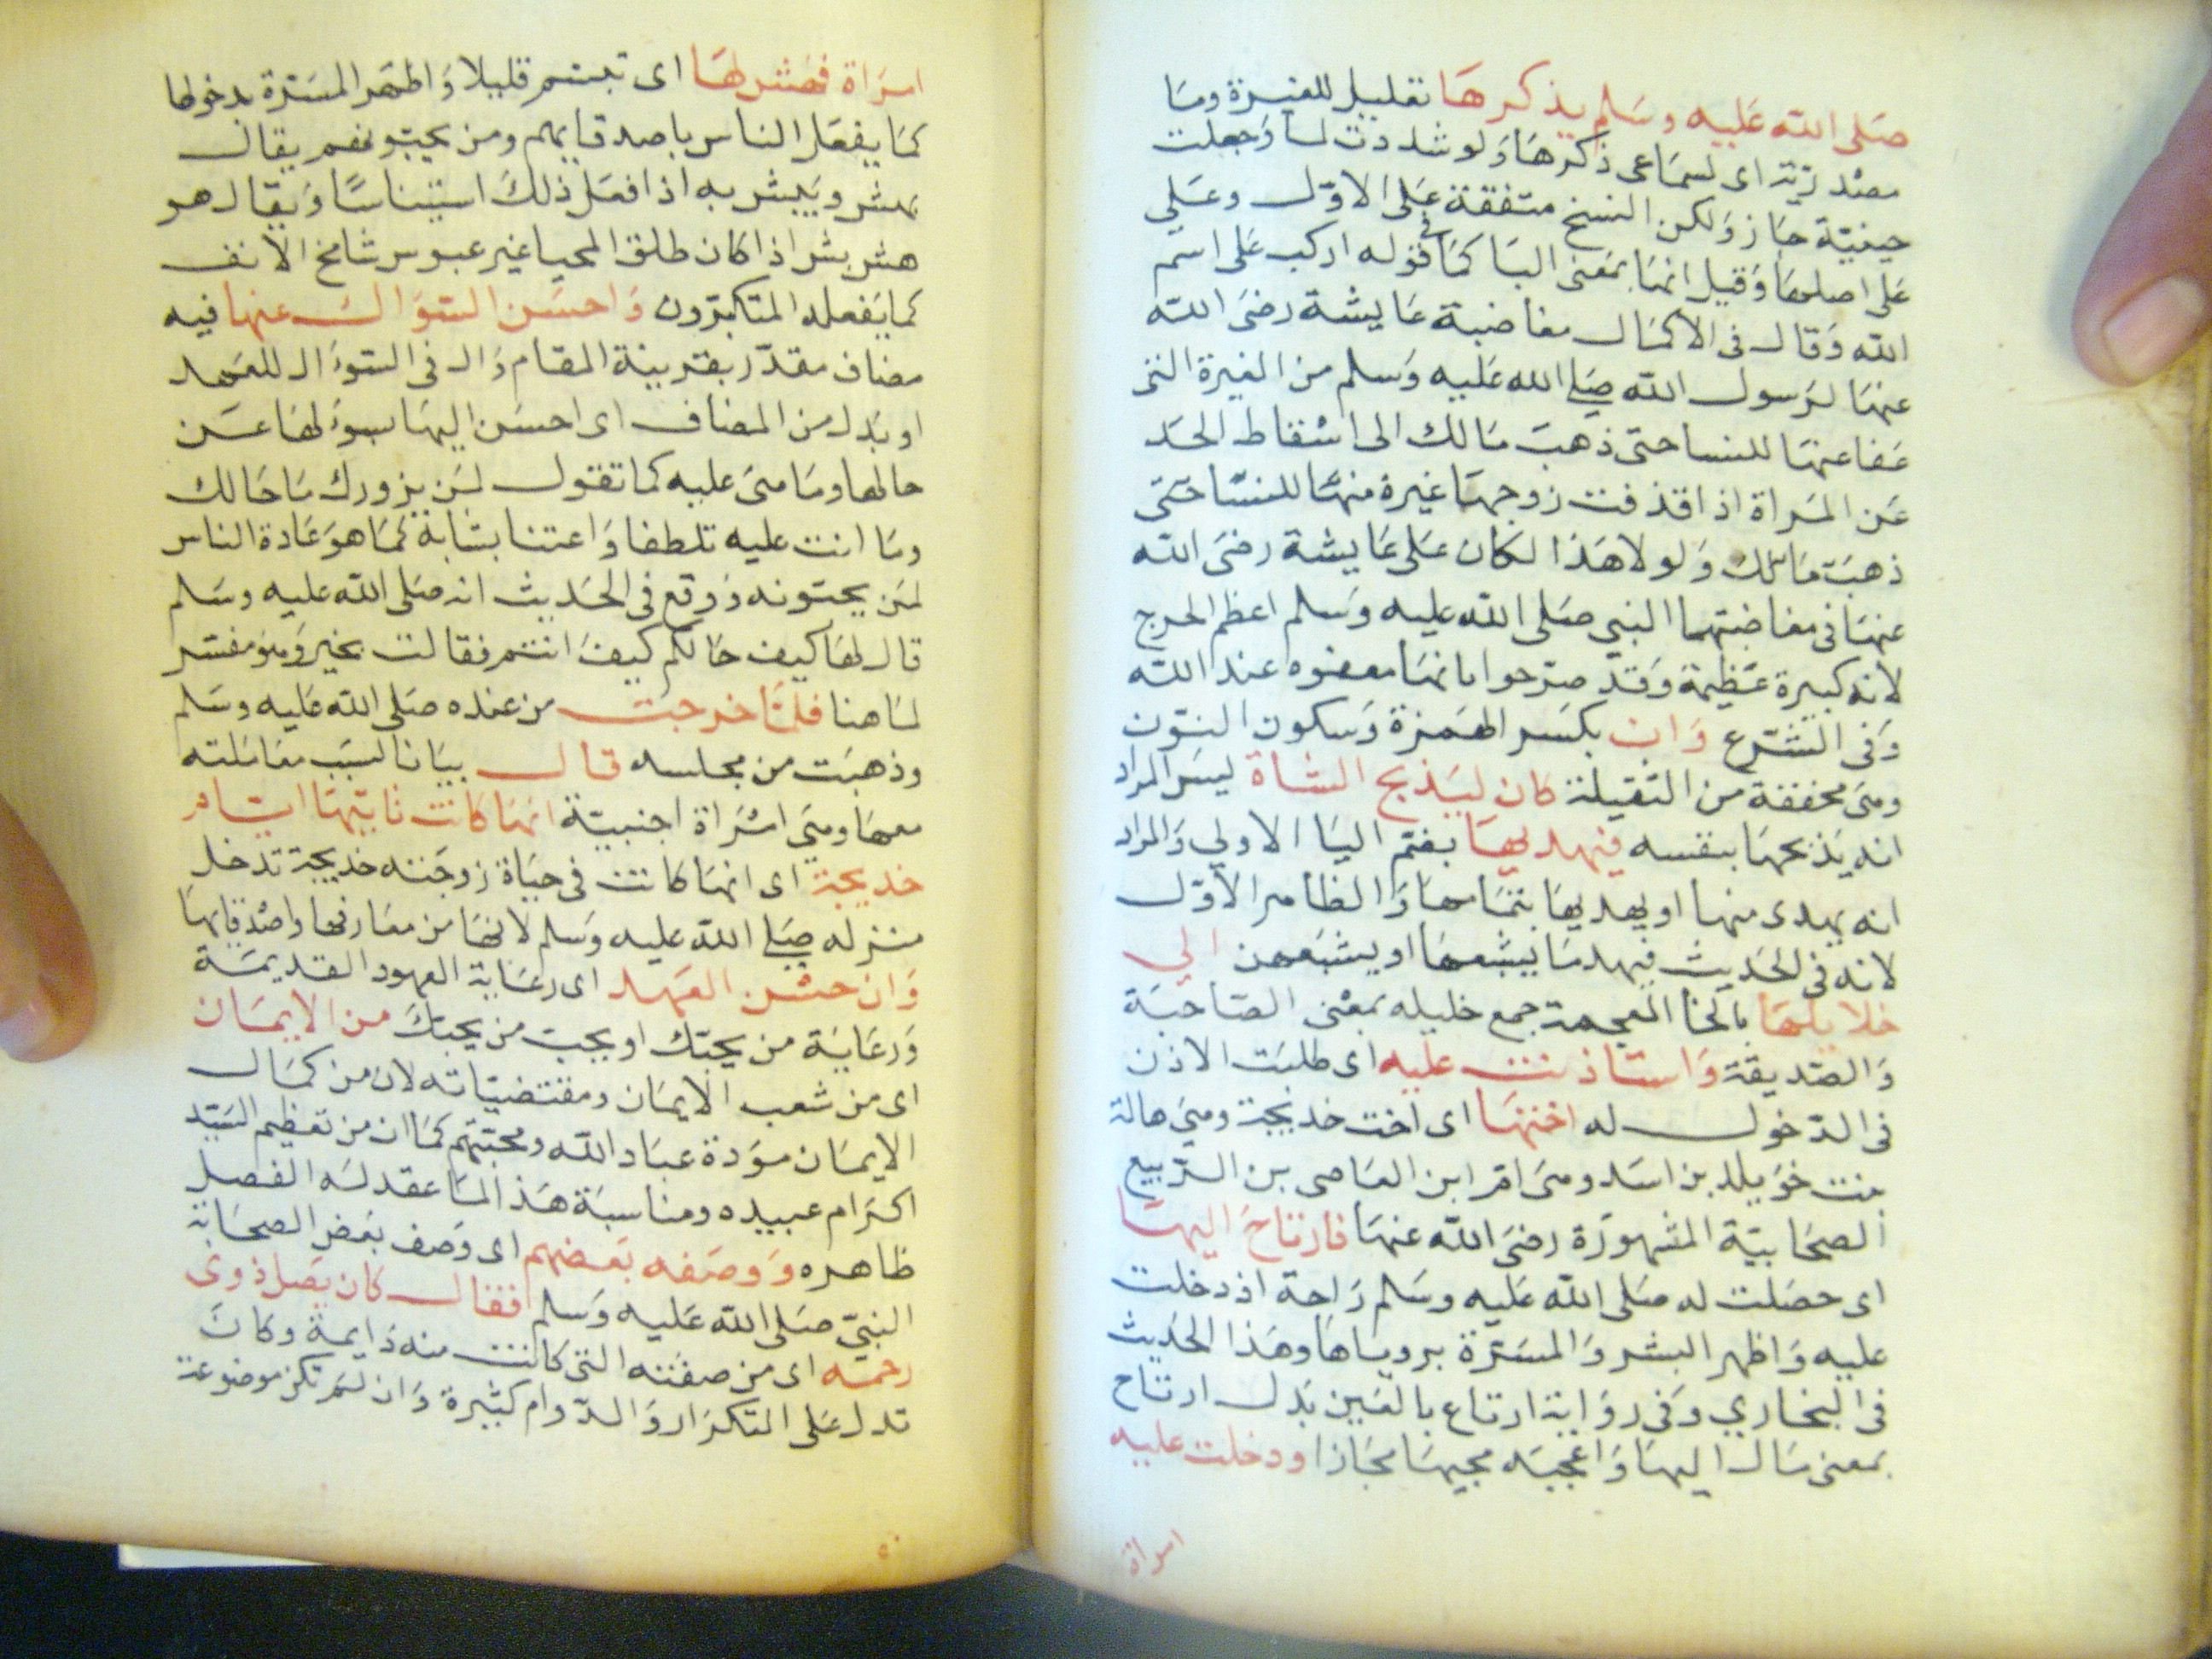 صلى الله عليه وسلم يذكرها تعليل للغيرة وما
مصدرية اى لسماعى ذكرها ولو شددت لما وجعلت
حينية جاز ولكن النسخ متفقة على الاول وعلى
على اصلها وقيل انها بمعنى البا كما فى قوله اركب على اسم
الله وقال فى الاكمال مغاضبة عايشة رضى الله
عنها لرسول الله صلى الله عليه وسلم من الغيرة التى
عفا عنها للنسا حتى ذهب مالك الى اسقاط الحد
عن المراة اذا قذفت زوجها غيرة منها للنسا حتى
ذهب مالك ولولا هذا لكان على عايشة رضى الله
عنها فى مغاضبتها النبى صلى الله عليه وسلم اعظم الحرج
لانه كبيرة عظيمة وقد صرحوا بانها معفوه عند الله
وفى الشرع وان بكسر الهمزة وسكون النون
وهى مخففة من الثقيلة كان ليذبح الشاة ليس المراد
انه يذبحها بنفسه فيهديها بضم اليا الاولي والمراد
انه يهدى منها او يهديها بتمامها والظاهر الاول
لانه فى الحديث فيهد ما يشبعها او يشبعهن الي
خلايلها بالخا المعجمة جمع خليله بمعنى الصاحبة
والصديقة واستاذنت عليه اى طلبت الاذن
فى الدخول له اختها اى اخت خديجة وهى هالة
بنت خويلد بن اسد وهى ام ابن العاصى بن الربيع
الصحابية المشهورة رضى الله عنها فارتاح اليها
اى حصلت له صلى الله عليه وسلم راحة اذ دخلت
عليه واظهر البشر والمسرة بروياها وهذا الحديث
فى البخاري وفى رواية ارتاع بالعين بدل ارتاح
بمعنى مال اليها واعجبه مجيها مجازا ودخلت عليه
امراة
امراة فهش لها اى تبسم قليلا واظهر المسرة بدخولها
كما يفعل الناس باصدقايهم ومن يحبونهم يقال
يهش ويبش به اذا فعل ذلك استيناسا ويقال هو
هش بش اذا كان طلق المحيا غير عبوس شامخ الانف
كما يفعله المتكبرون واحسن السوال عنها فيه
مضاف مقدر بقرينة المقام وال فى السوال للعهد
او بدل من المضاف اى احسن اليها سولها عن
حالها وما هى عليه كما تقول لمن يزورك ما حالك
وما انت عليه تلطفا واعتنا بشانه كما هو عادة الناس
لمن يحبونه ووقع فى الحديث انه صلى الله عليه وسلم
قال لها كيف حالكم كيف انتم فقالت بخير وهو مفسر
لما هنا فلما خرجت من عنده صلى الله عليه وسلم
وذهبت من مجلسه قال بيانا لسبب معاملته
معها وهى امراة اجنبية انها كانت تاتينا ايام
خديجة اى انها كانت فى حياة زوجته خديجة تدخل
منزله صلى الله عليه وسلم لانها من معارفها واصدقايها
وان حسن العهد اى رعاية العهود القديمة
ورعاية من يحبك او يحب من يحبك من الايمان
اى من شعب الايمان ومقتضياته لان من كمال
الايمان مودة عباد الله ومحبتهم كما ان من تعظيم السيد
اكرام عبيده ومناسبة هذا لما عقد له الفصل
ظاهره ووصفه بعضهم اى وصف بعض الصحابة
النبى صلى الله عليه وسلم فقال كان يصل ذوى
رحمه اى من صفته التى كانت منه دايمة وكان
تدل على التكرار والدوام كثيرة وان لم تكن موضوعة